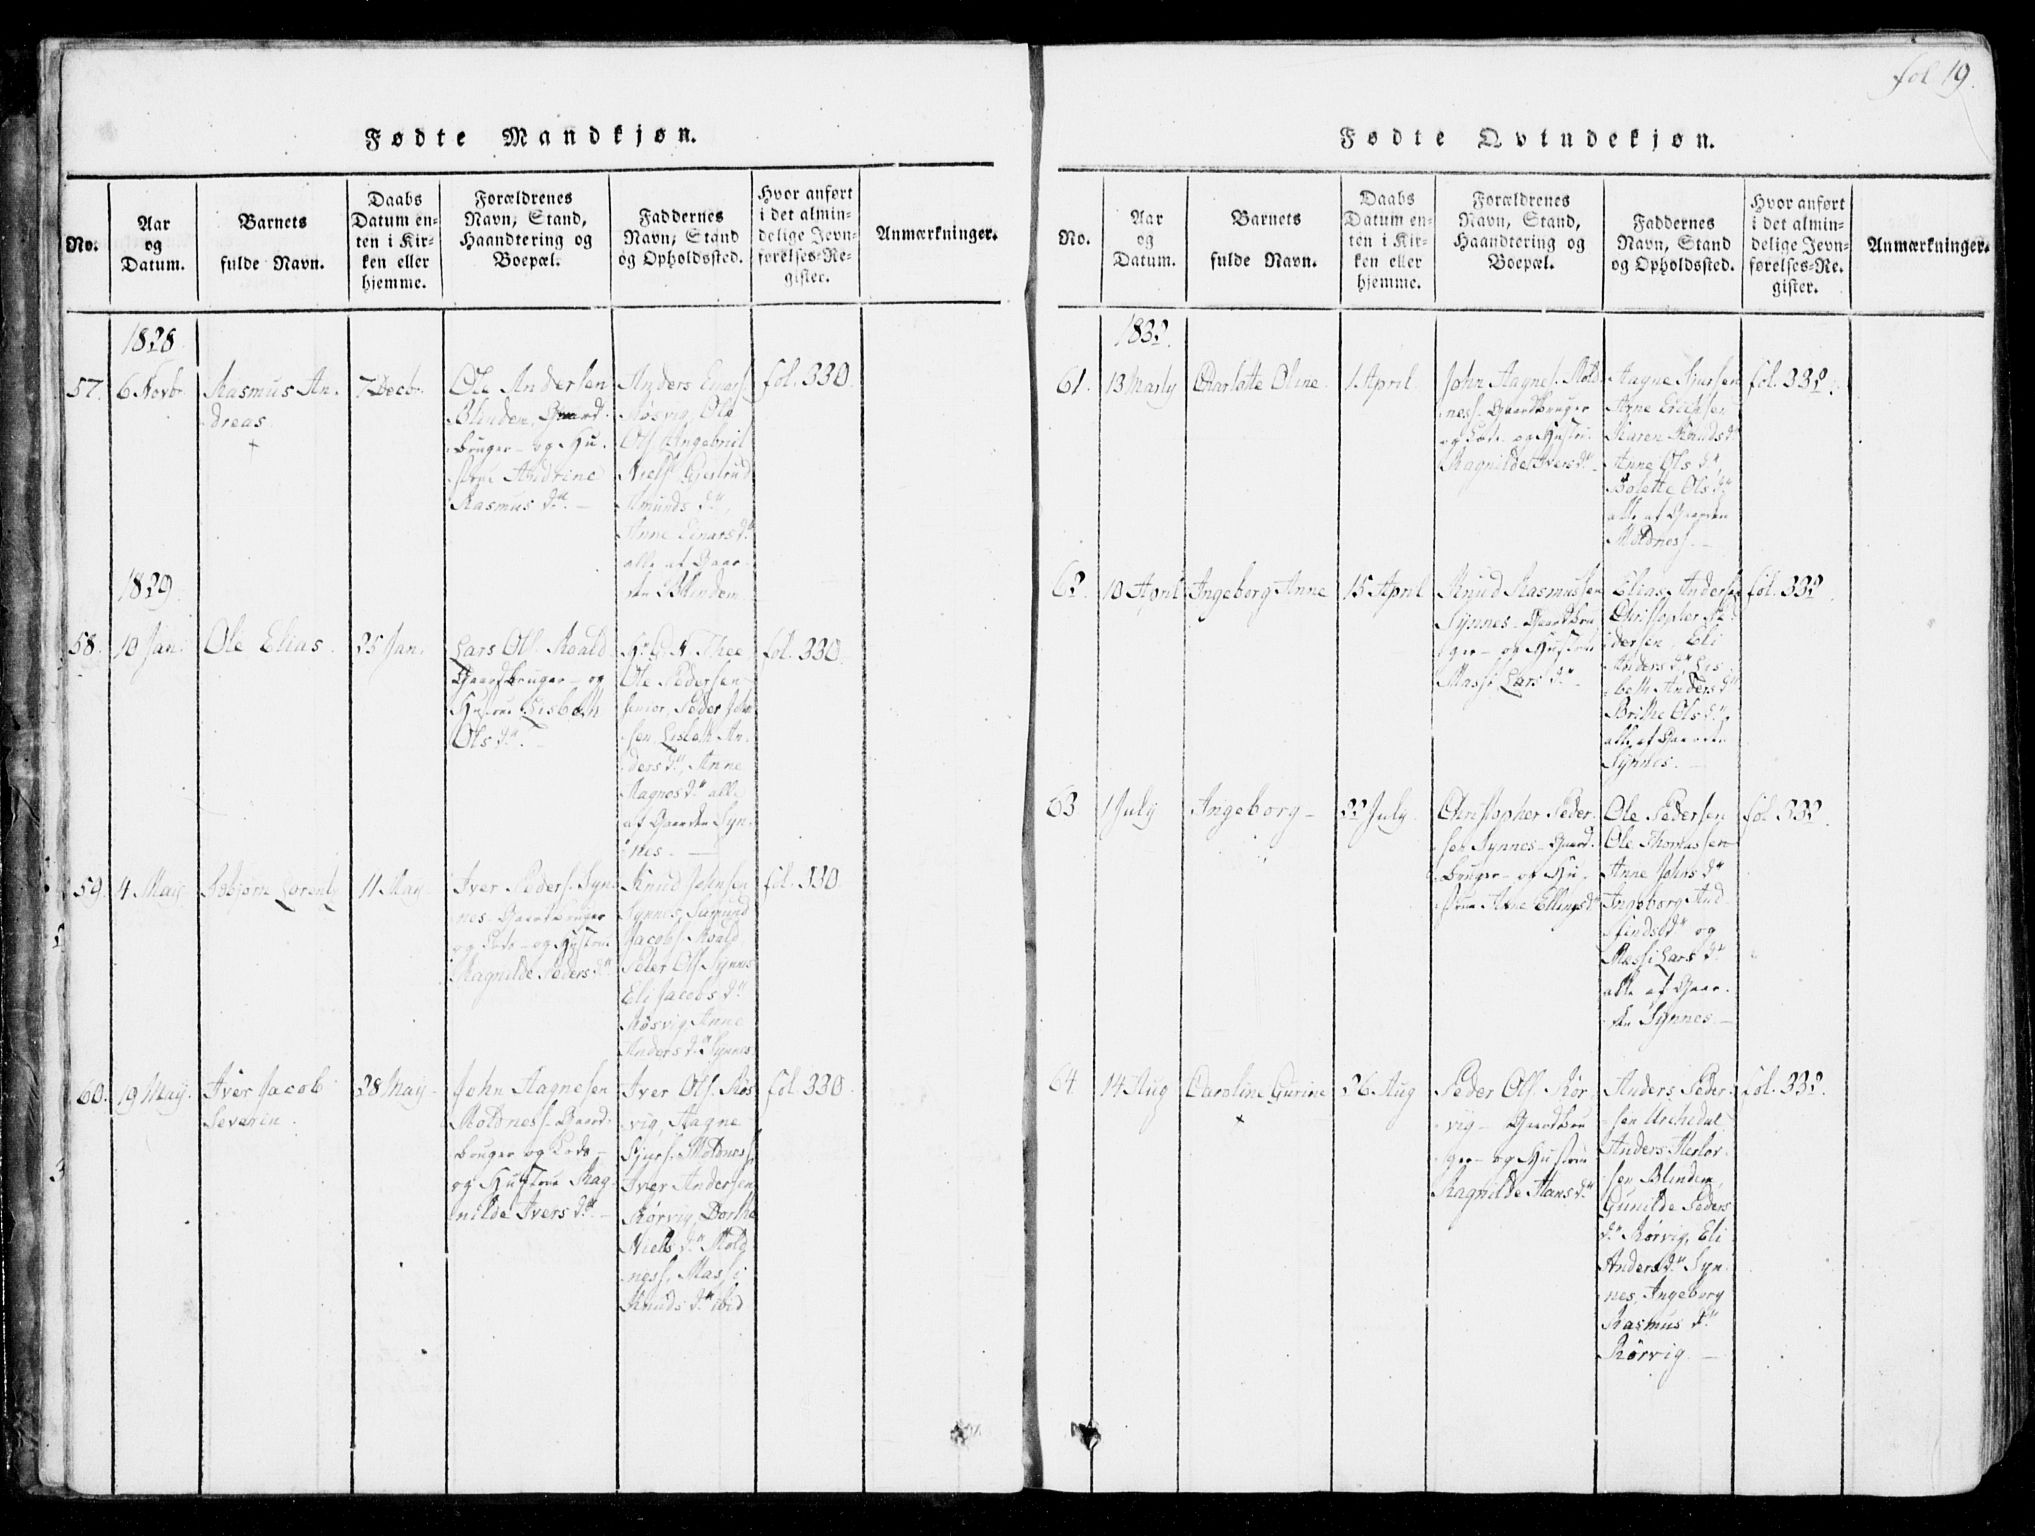 fol 19.
Fødte Mandkjøn.
No.
Aar
og
Datum.
Barnets
fulde Navn.
Daabs
Datum en-
ten i Kir-
ken eller
hjemme.
Forældrenes
Navn, Stand,
Haandtering og
Boepæl.
Faddernes
Navn, Stand
og Opholdssted.
Hvor anført
i det almin-
delige Jevn-
førelses-Re-
gister.
Anmærkninger.
1828
57.
6 Novbr.
Rasmus An-
dreas
+
7 Decbr.
Ole Andersen
Blinden, Gaard-
bruger - og Hu-
strue Andrine
Rasmus dr. -
Anders Einars.
Røsvig, Ole
Ols. Ingebrigt
Niels. Giertrud
Amunds dr.,
Anne Einars dr.
alle af Gaar-
den Blindem
fol. 330.
1829.
58.
10 Jan:
Ole Elias.
25 Jan.
Lars Ols. Roald
Gaardbruger - og
Hustrue Lisbeth
Ols dr. -
Hr. Thee
Ole Pedersen
senior, Peder John-
sen, Lisbeth An-
ders dr., Anne
Magnes dr. alle
af Gaarden Syn-
nes. -
fol. 330.
59.
4 May
Lorents
11 May
Iver Peders. Syn-
nes - Gaardbruger
og Lods - og Hustrue
Ragnilde Peders dr.
Knud Johnsen
Synnes,
Jacobs. Roald,
Peter Ols. Synnes
Eli Jacobs dr.
Røsvig, Anne
Anders dr. Synnes.
fol. 330.
60.
19 May.
Iver Jacob
Severin.
28 May
John Aagnesen
Moldness. Gaard-
bruger og Lods -
og Hustrue Rag-
nilde Ivers dr. -
Iver Ols. Røs-
vig, Aagne
Sjurs. Moldness,
Iver Andersen
Rørvig, Dorthe
Niels dr. Mold-
ness, Massi
Knuds dr. ibid
fol. 330.
Fødte Qvindekjøn.
No.
Aar
og
Datum.
Barnets
fulde Navn.
Daabs
Datum en-
ten i Kir-
ken eller
hjemme.
Forældrenes
Navn, Stand,
Haandtering og
Boepæl.
Faddernes
Navn, Stand
og Opholdssted.
Hvor anført
i det almin-
delige Jevn-
førelses-Re-
gister.
Anmærkninger.
1832.
61.
13 Marty
Charlotte Oline.
1 April.
John Aagnes. Mold-
ness. Gaardbruger
og Lods - og Hustrue
Ragnilde Ivers dr. -
Aagne Sjursen
Arne Erichsen
Karen Knuds dr.
Anne Ols dr.,
Bolette Ols dr.
alle af Gaarden
Moldness. -
fol. 332.
62.
10 April
Ingeborg Anne
15 April
Knud Rasmussen
Synnes - Gaardbru-
ger - og Hustrue
Massi Lars dr. -
Elias Andersen
Christopher Pe-
dersen, Eli
Anders dr. Lis-
beth Anders dr.
Brithe Ols dr.
alle af Gaarden
Synnes. -
fol. 332.
63
1 July
Ingeborg -
22 July.
Christopher Peder-
sen Synnes - Gaard-
bruger - og Hu-
strue Anne Ellings dr.
Ole Pedersen
Ole Thomassen
Anne Johns dr.
Ingeborg
og
Massi Lars dr.
alle af Gaar-
den Synnes -
fol. 332.
64
14 Aug
Caroline Gurine
+
26 Aug
Peder Ols. Rør-
vig - Gaardbru-
ger - og Hustrue
Ragnilde Hans dr.
Anders Peder-
sen
Anders
sen Blindem,
Gunilde Peders
dr. Rørvig, Eli
Anders dr. Syn-
nes, Ingeborg
Rasmus dr.
Rørvig. -
fol. 332.